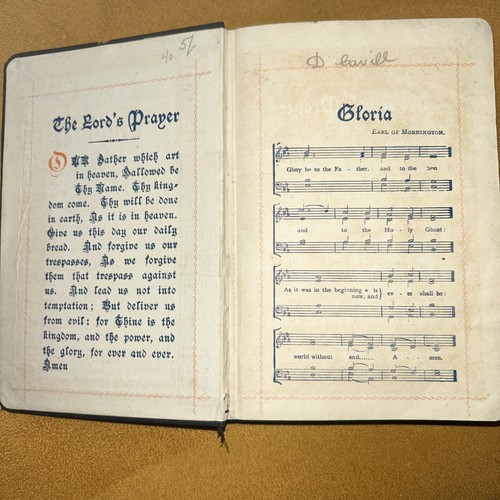 5/
40
The Lord's Prayer
OUR Father which art
in heaven, Hallowed be
Thy Name. Thy king-
dom come. Thy will be done
in earth, As it is in heaven.
Give us this day our daily
bread. And forgive us our
trespasses, As we forgive
them that trespass against
us. And lead us not into
temptation; But deliver us
from evil: for Thine is the
kingdom, and the power, and
the glory, for ever and ever.
Amen
D Cavill
Gloria
EARL OF MORNINGTON.
Glory be to the Fa - ther, and to the Son
and to the Ho - ly Ghost:
As it was in the beginning + is } ev - er shall be:
now, and
world without end...... A - men.